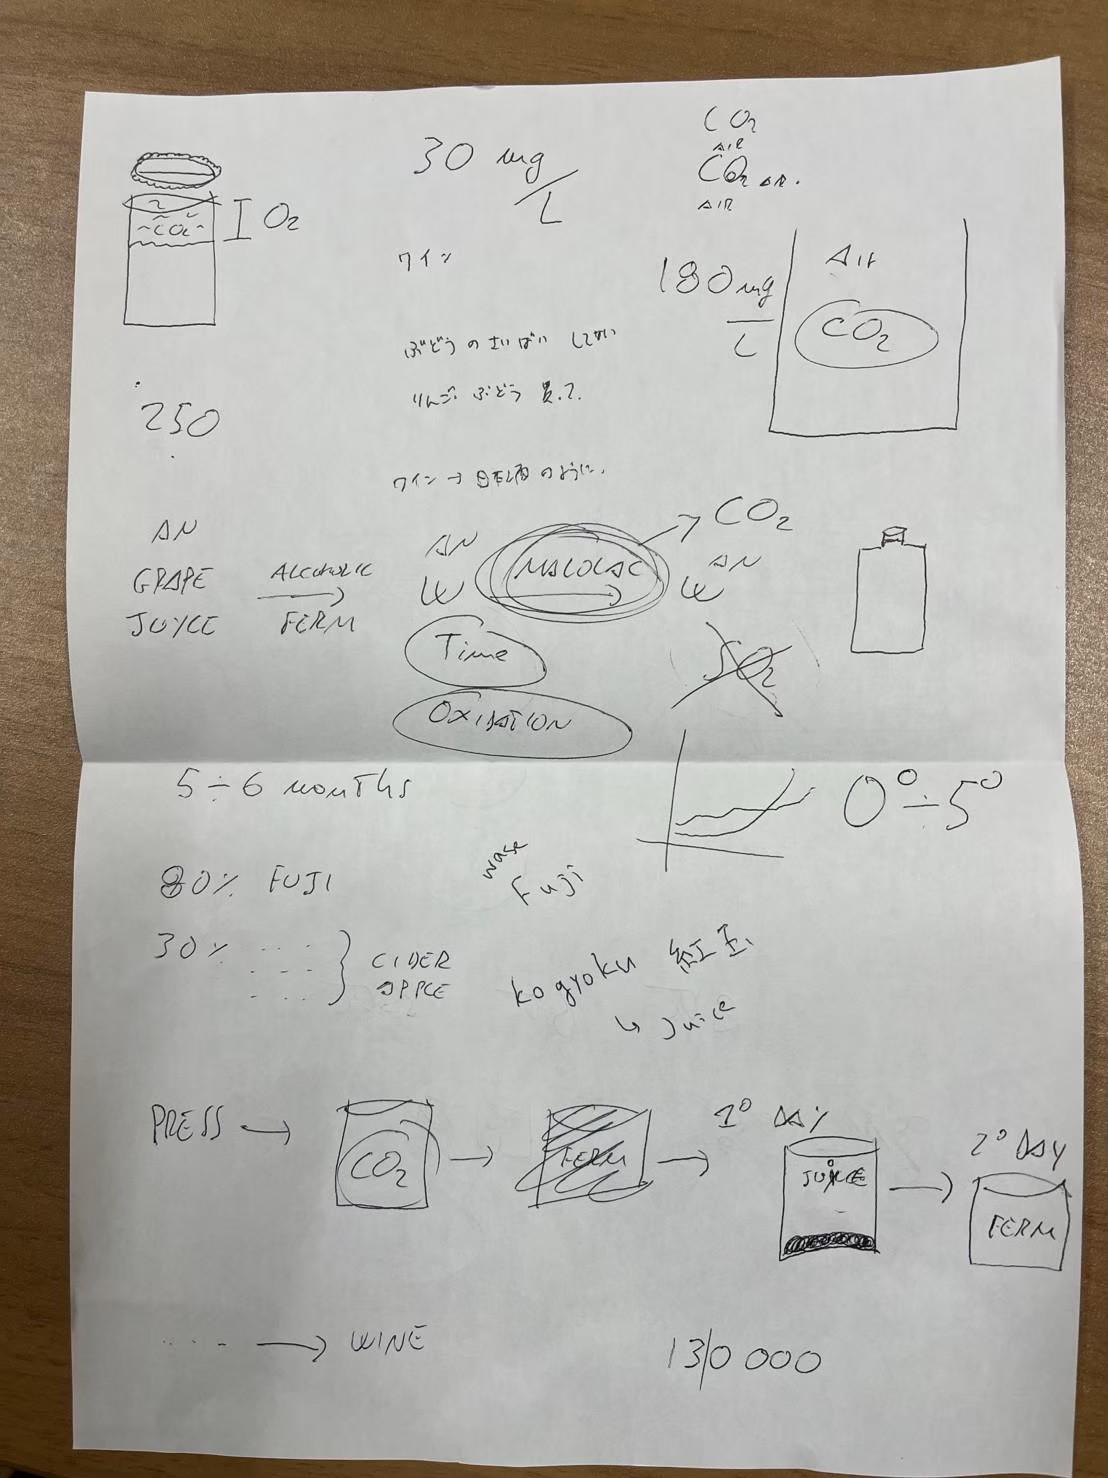 CO2
AIR
30 mg/L
CO2 AR.
AIR
CO2
O2
ワイン
180 mg/L
AIr
CO2
ぶどうのさいばい してない
りんご ぶどう 買って
250
ワイン→日本酒のように.
AN
GRAPE
JUYCE
ALCOHOLIC
FERM
AN
W
MALOLAC
CO2
AN
W
Time
SO2
OXIDATION
5÷6 months
0°÷5°
80% FUJI
wase
Fuji
30%
CIDER
APPLE
kogyoku 紅玉
↳ Juice
PRESS →
CO2
→
FERM
→
1° DAY
JUYCE
→
2° DAY
FERM
.... → WINE
13/0 000